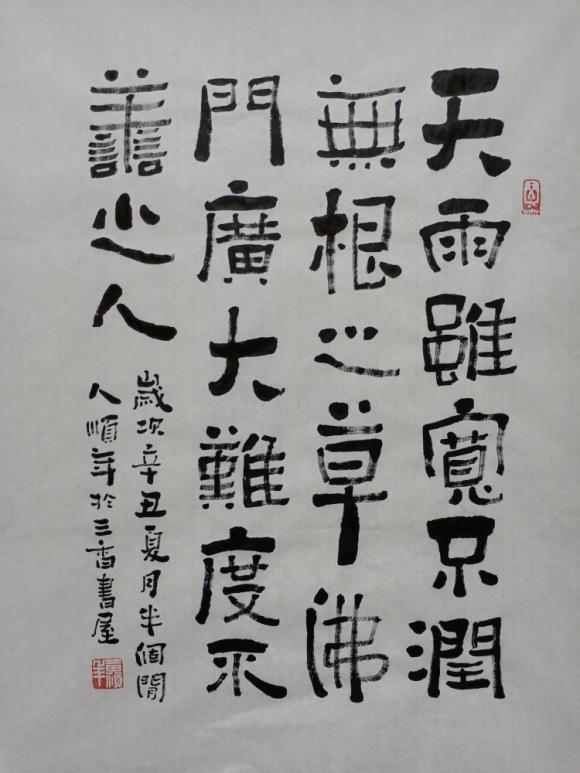 天雨雖寬不潤
無根之草佛
門廣大難度不
譱之人
歲次辛丑夏月半個閒
人順年於三香書屋